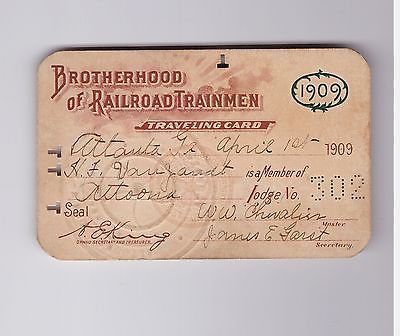 BROTHERHOOD
OF RAILROAD TRAINMEN
1909
TRAVELING CARD
Atlanta Ga April 1st 1909
H. F. Vanzandt is a Member of
Altoona Lodge No. 302
Seal W. W. Chevalier
Master
A. E. King James E. Garst
GRAND SECRETARY AND TREASURER. Secretary.